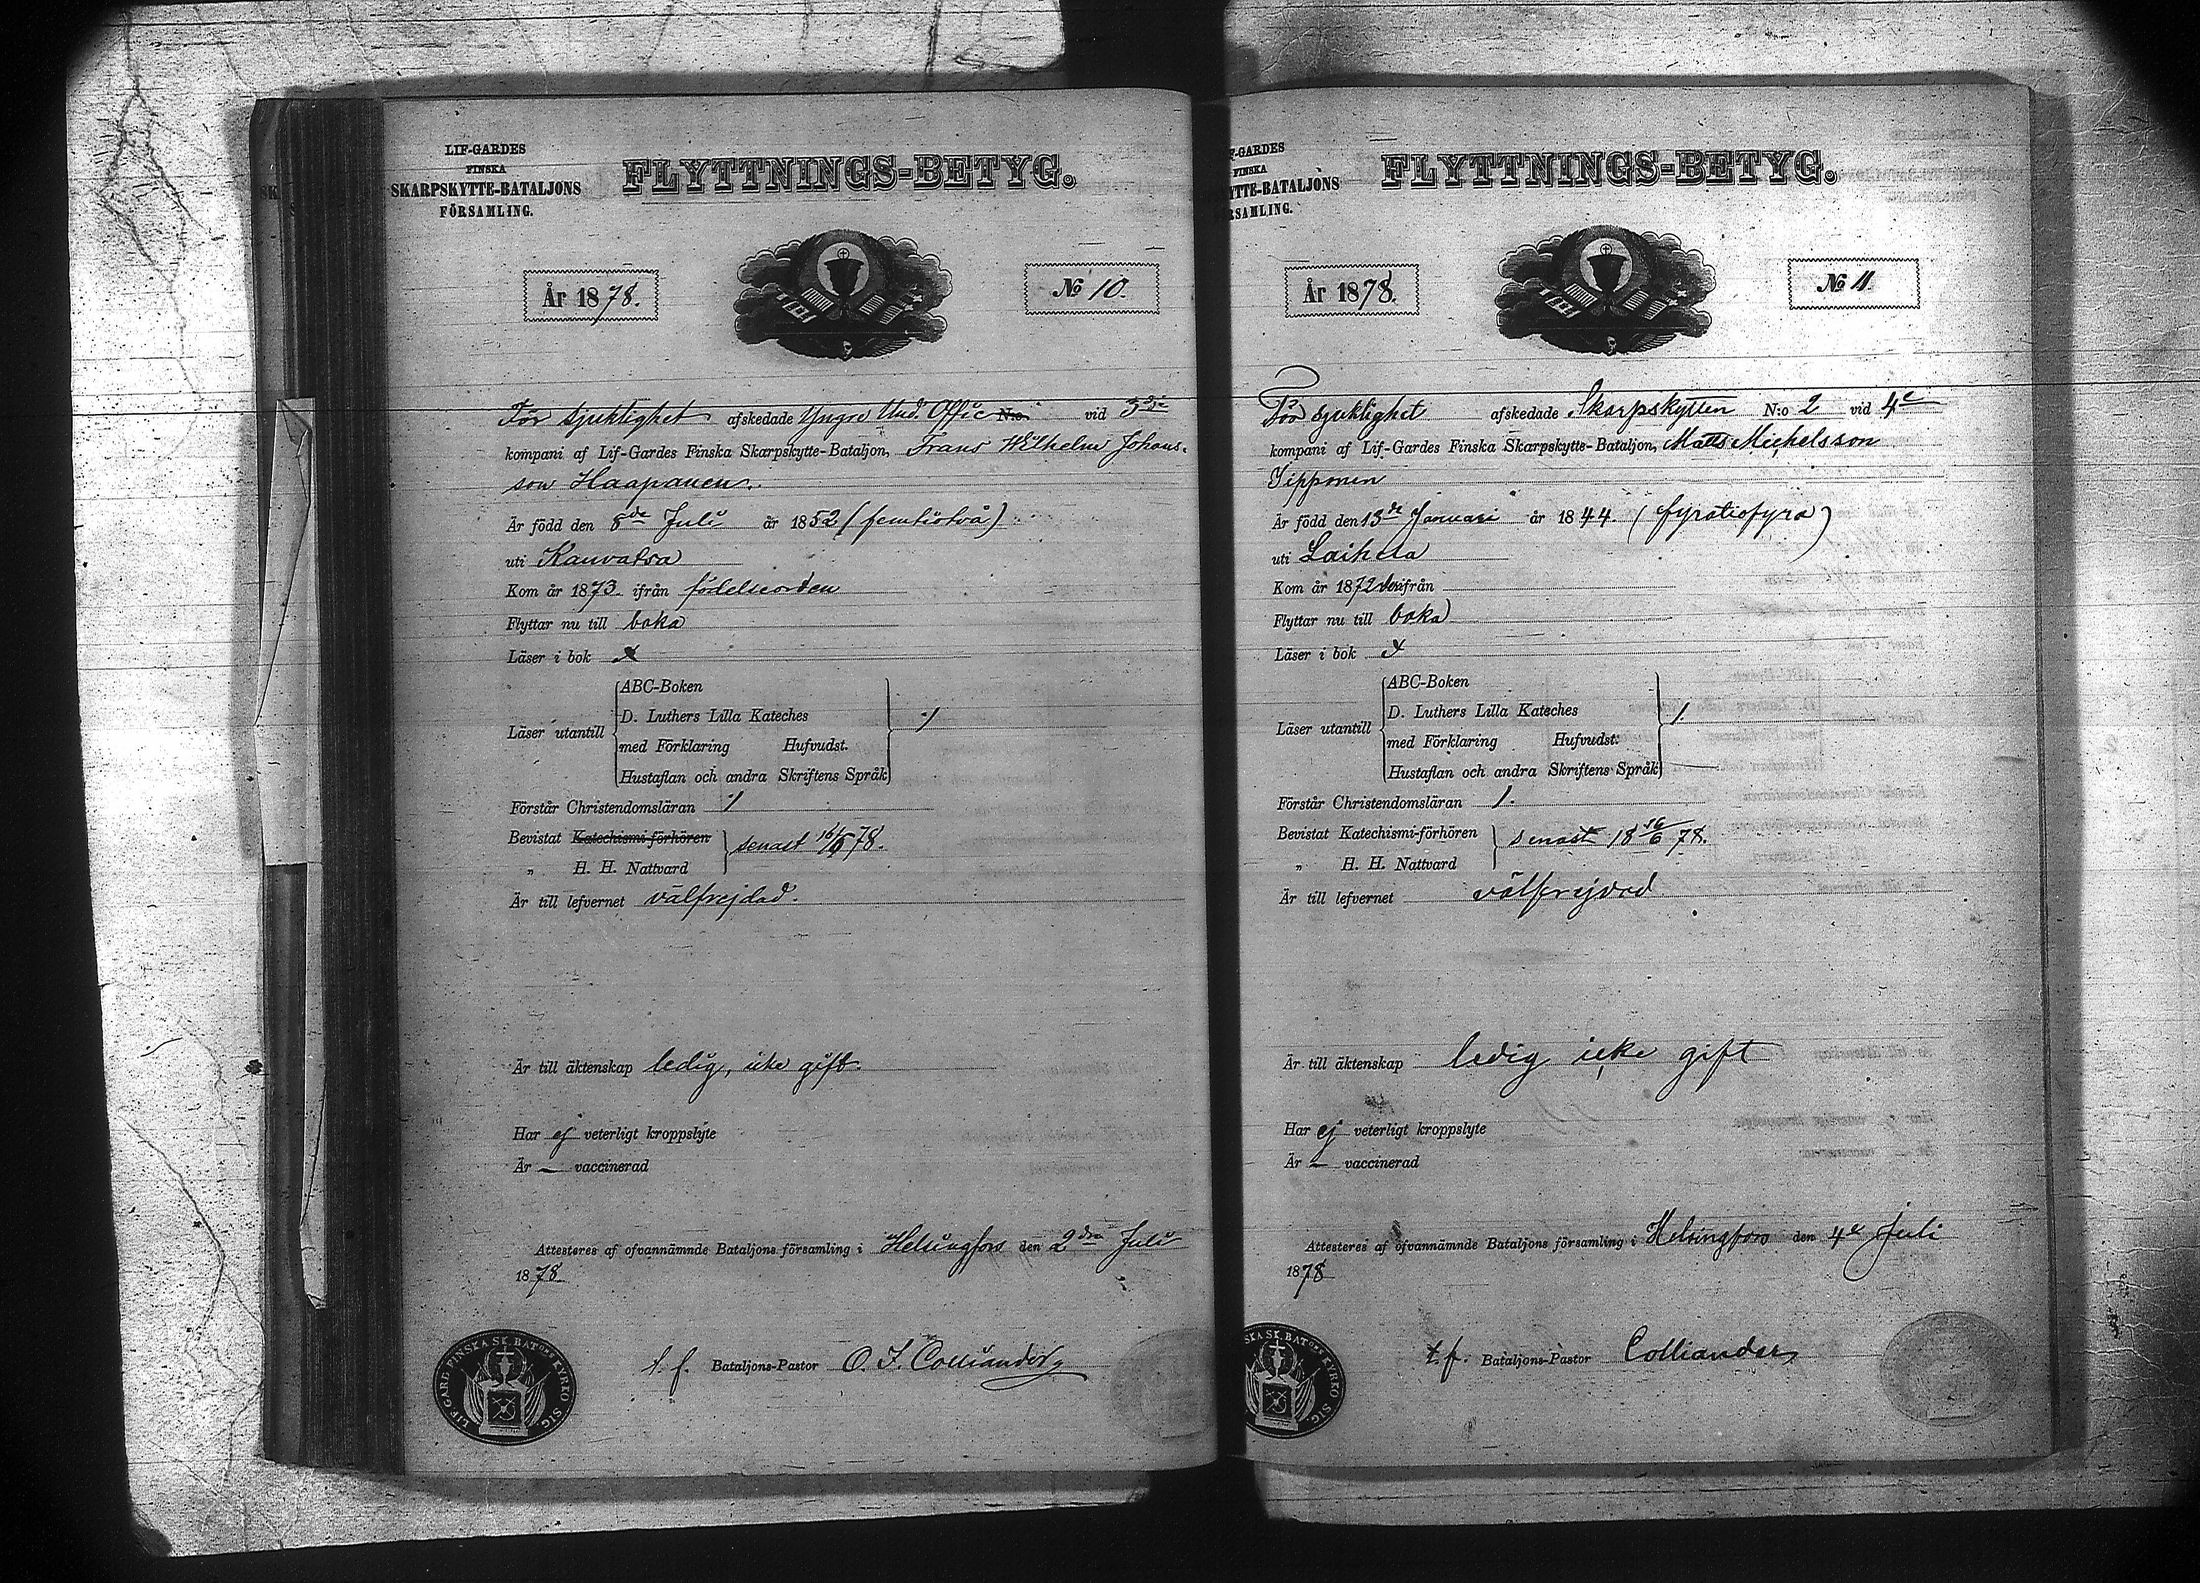 LIF-GARDES
FINSKA
SKARPSKYTTE-BATALJONS
FÖRSAMLING.
FLYTTNINGS-BETYG.
År 1878.
No 10.
För sjuklighet afskedade Yngre Und. Offic N:o vid 3dje
kompani af Lif-Gardes Finska Skarpskytte-Bataljon, Frans Wilhelm Johans-
son Haapanen.
Är född den 8de Juli år 1852 (femtiotvå)
uti Kauvatsa
Kom år 1873 ifrån födelseorten
Flyttar nu till boka
Läser i bok x
ABC-Boken
D. Luthers Lilla Kateches
Läser utantill
med Förklaring Hufvudst.
Hustaflan och andra Skriftens Språk
1
Förstår Christendomsläran 1
Bevistat Katechismi-förhören
senast 16/6 78.
„ H. H. Nattvard
Är till lefvernet välfrejdad.
Är till äktenskap ledig, icke gift.
Har ej veterligt kroppslyte
Är — vaccinerad
Attesteres af ofvannämnde Bataljons församling i Helsingfors den 2dra Juli
1878.
t. f. Bataljons-Pastor O. I. Colliander
LIF-GARE FINSKA SK. BATONS KYRKO SIG.
F-GARDES
FINSKA
TTE-BATALJONS
RSAMLING.
FLYTTNINGS-BETYG.
År 1878.
No 11.
För sjuklighet afskedade Skarpskytten N:o 2 vid 4e
kompani af Lif-Gardes Finska Skarpskytte-Bataljon, Matts Michelsson
Sipponen
Är född den 13de Januari år 1844. (fyratiofyra)
uti Laihela
Kom år 1872 ifrån
Flyttar nu till boka
Läser i bok x
ABC-Boken
D. Luthers Lilla Kateches
Läser utantill
med Förklaring Hufvudst:
Hustaflan och andra Skriftens Språk
1.
Förstår Christendomsläran 1.
Bevistat Katechismi-förhören
senast 18 16/6 78.
„ H. H. Nattvard
Är till lefvernet välfrejdad
Är till äktenskap ledig icke gift
Har ej veterligt kroppslyte
Är — vaccinerad
Attesteres af ofvannämnde Bataljons församling i Helsingfors den 4e Juli
1878
t. f. Bataljons-Pastor Colliander
SKA SK. BATONS KYRKO SIG.